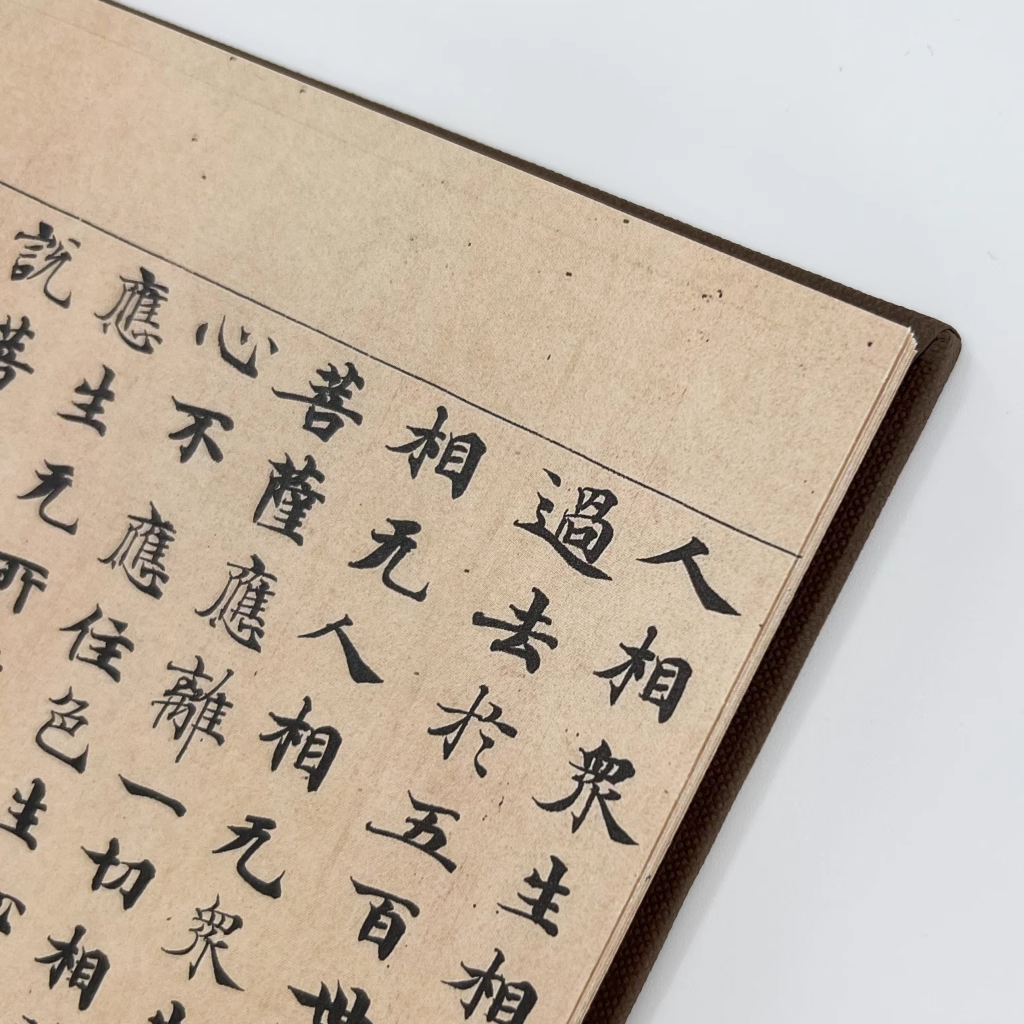 人相衆生相
過去於五百世
相无人相无衆生
菩薩應離一切相
心不應住色生
應生无所
説菩